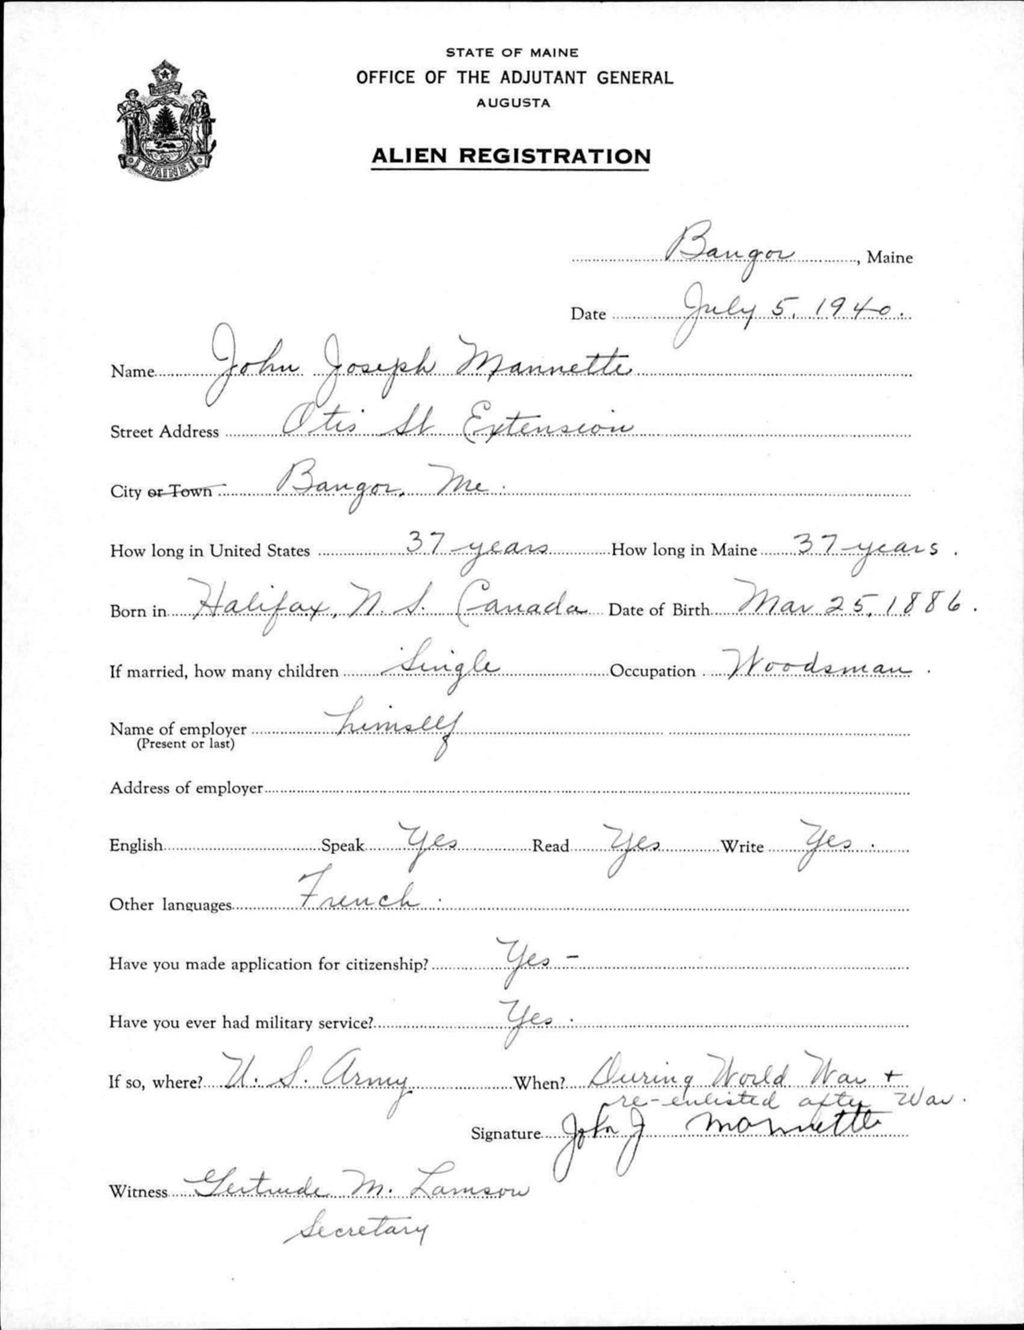 STATE OF MAINE
OFFICE OF THE ADJUTANT GENERAL
AUGUSTA
ALIEN REGISTRATION
MAINE
Bangor, Maine
Date July 5, 1940.
Name John Joseph Mannette
Street Address Otis St Extension
City or Town Bangor, Me.
How long in United States 37 years How long in Maine 37 years.
Born in Halifax, N. S. Canada Date of Birth Mar 25, 1886.
If married, how many children Single Occupation Woodsman.
Name of employer himself
(Present or last)
Address of employer
English Speak Yes Read Yes Write Yes.
Other languages French.
Have you made application for citizenship? Yes -
Have you ever had military service? Yes.
If so, where? U. S. Army When? During World War +
re-enlisted after War.
Signature John J Mannette
Witness Gertrude M. Lamson
Secretary